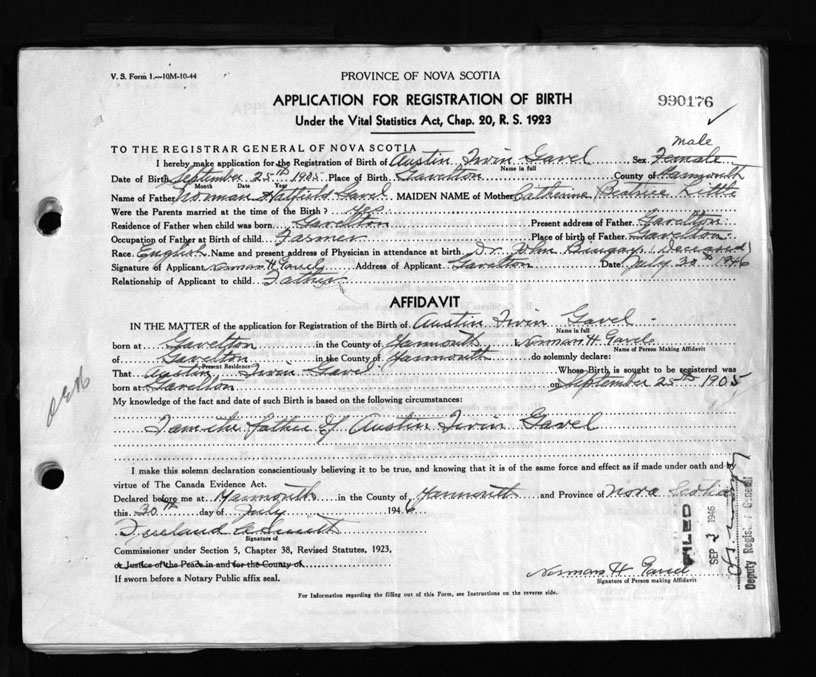 V. S. Form 1.—10M-10-44
PROVINCE OF NOVA SCOTIA
APPLICATION FOR REGISTRATION OF BIRTH
990176
Under the Vital Statistics Act, Chap. 20, R. S. 1923
TO THE REGISTRAR GENERAL OF NOVA SCOTIA
male
I hereby make application for the Registration of Birth of Austin Irvin Gavel Sex Female
Name in full
Date of Birth September 25th 1905 Place of Birth Gavelton County of Yarmouth
Month Date Year
Name of Father Norman Hatfield Gavel MAIDEN NAME of Mother Catherine Beatrice Little
Were the Parents married at the time of the Birth? yes
Residence of Father when child was born Gavelton Present address of Father Gavelton
Occupation of Father at Birth of child Farmer Place of birth of Father Gavelton
Race English Name and present address of Physician in attendance at birth Dr. (Deceased)
Signature of Applicant Norman H Gavel Address of Applicant Gavelton Date July 30th 1946
Relationship of Applicant to child Father
AFFIDAVIT
IN THE MATTER of the application for Registration of the Birth of Austin Irvin Gavel
Name in full
born at Gavelton in the County of Yarmouth Norman H. Gavel
Name of Person Making Affidavit
of Gavelton in the County of Yarmouth do solemnly declare:
Present Residence
That Austin Irvin Gavel Whose Birth is sought to be registered was
born at Gavelton on September 25th 1905
My knowledge of the fact and date of such Birth is based on the following circumstances:
I am the father of Austin Irvin Gavel
I make this solemn declaration conscientiously believing it to be true, and knowing that it is of the same force and effect as if made under oath and by
virtue of The Canada Evidence Act.
Declared before me at Yarmouth in the County of Yarmouth and Province of Nova Scotia
this 30th day of July 1946
Smith
Signature of
Commissioner under Section 5, Chapter 38, Revised Statutes, 1923,
or Justice of the Peace in and for the County of
If sworn before a Notary Public affix seal.
Norman H Gavel
Signature of Person making Affidavit
FILED
SEP 3 1946
Deputy Registrar General
For Information regarding the filling out of this Form, see Instructions on the reverse side.